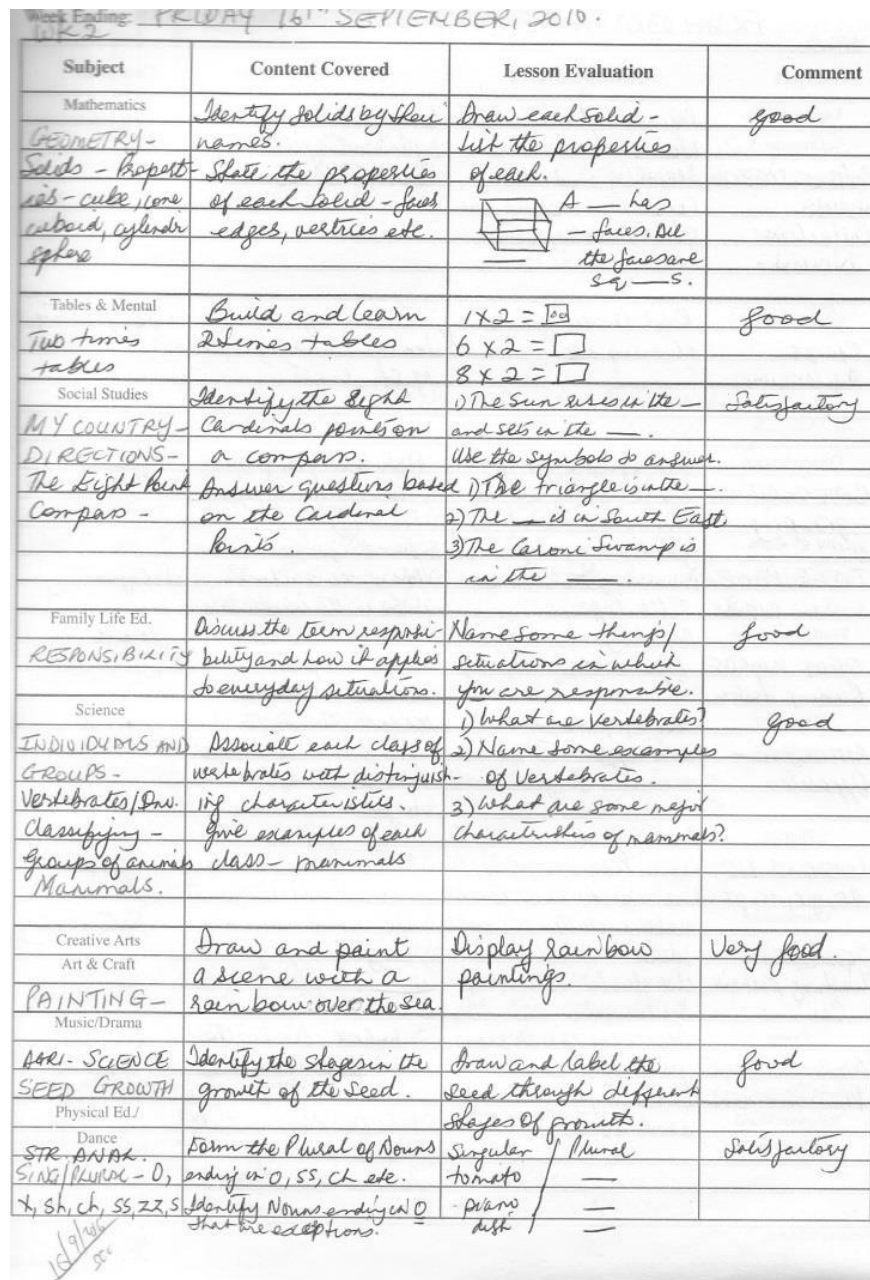 Week Ending: FRIDAY 16TH SEPTEMBER, 2016.
WK2
Subject Content Covered Lesson Evaluation Comment
Mathematics
GEOMETRY-
Solids - Propert-
ies - cube, cone
cuboid, cylindr
sphere
Identify solids by their
names.
State the properties
of each solid - faces
edges, vertices etc.
Draw each solid -
list the properties
of each.
A __ has
- faces. All
the faces are
sq __ s.
good
Tables & Mental
Two times
tables
Build and learn
2 times tables
1 x 2 =
6 x 2 =
8 x 2 =
good
Social Studies
MY COUNTRY -
DIRECTIONS -
The Eight Point
Compass -
Identify the eight
Cardinals points on
a compass.
Answer questions based
on the Cardinal
Points.
1) The Sun rises in the -
and sets in the __.
Use the symbols to answer.
1) The triangle is in the __.
2) The __ is in South East.
3) The Caroni Swamp is
in the __.
Satisfactory
Family Life Ed.
RESPONSIBILITY
Discuss the term responsi-
bility and how it applies
to everyday situations.
Name some things/
situations in which
you are responsible.
good
Science
INDIVIDUALS AND
GROUPS -
Vertebrates/Inv.
Classifying -
Groups of animals
Mammals.
Associate each class of
vertebrates with distinguish-
ing characteristics.
Give examples of each
class - mammals
1) What are vertebrates?
2) Name some examples
of vertebrates.
3) What are some major
characteristics of mammals?
good
Creative Arts
Art & Craft
PAINTING -
Draw and paint
a scene with a
rainbow over the sea.
Display rainbow
paintings.
Very good.
Music/Drama
AGRI-SCIENCE
SEED GROWTH
Identify the stages in the
growth of the seed.
Draw and label the
seed through different
stages of growth.
good
Physical Ed./
Dance
STR. ANAL.
SING/PLURAL - O,
x, sh, ch, ss, zz, s
Form the Plural of Nouns
ending in O, ss, ch etc.
Identify Nouns ending in O
that are exceptions.
Singular / Plural
tomato __
piano __
dish __
Satisfactory
16/9/2016